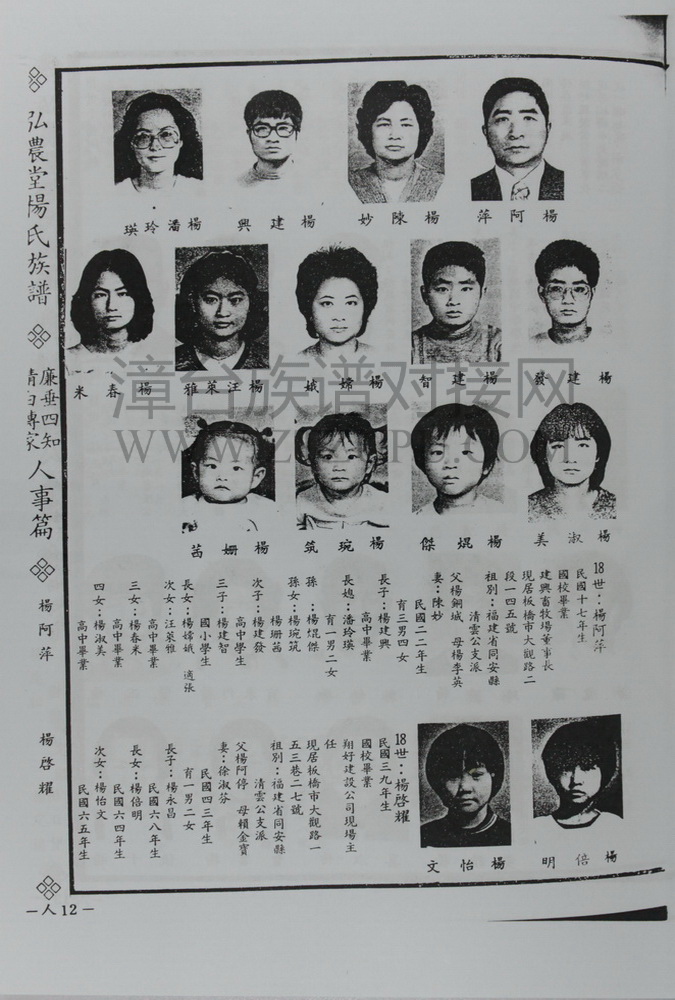 弘農堂楊氏族譜
廉垂四知
清白傳家
人事篇
楊阿萍
楊啓耀
—人12—
楊阿萍
楊陳妙
楊建興
楊潘玲瑛
楊建發
楊建智
楊嫦娥
楊汪萊雅
楊春米
楊淑美
楊焜傑
楊琬筑
楊姍茜
漳台族谱对接网
18世：楊阿萍
民國十七年生
國校畢業
建興畜牧場董事長
現居板橋市大觀路二
段一四五號
祖別：福建省同安縣
清雲公支派
父楊銅城　母楊李英
妻：陳妙
民國二二年生
育三男四女
長子：楊建興
高中畢業
長媳：潘玲瑛
育一男二女
孫：楊焜傑
孫女：楊琬筑
楊姍茜
次子：楊建發
高中學生
三子：楊建智
國小學生
長女：楊嫦娥　適張
次女：汪萊雅
高中畢業
三女：楊春米
高中畢業
四女：楊淑美
高中畢業
楊倍明
楊怡文
18世：楊啓耀
民國三九年生
國校畢業
翔好建設公司現場主
任
現居板橋市大觀路一
五三巷二七號
祖別：福建省同安縣
清雲公支派
父楊阿停　母賴金寶
妻：徐淑芬
民國四三年生
育一男二女
長子：楊永昌
民國六八年生
長女：楊倍明
民國六四年生
次女：楊怡文
民國六五年生